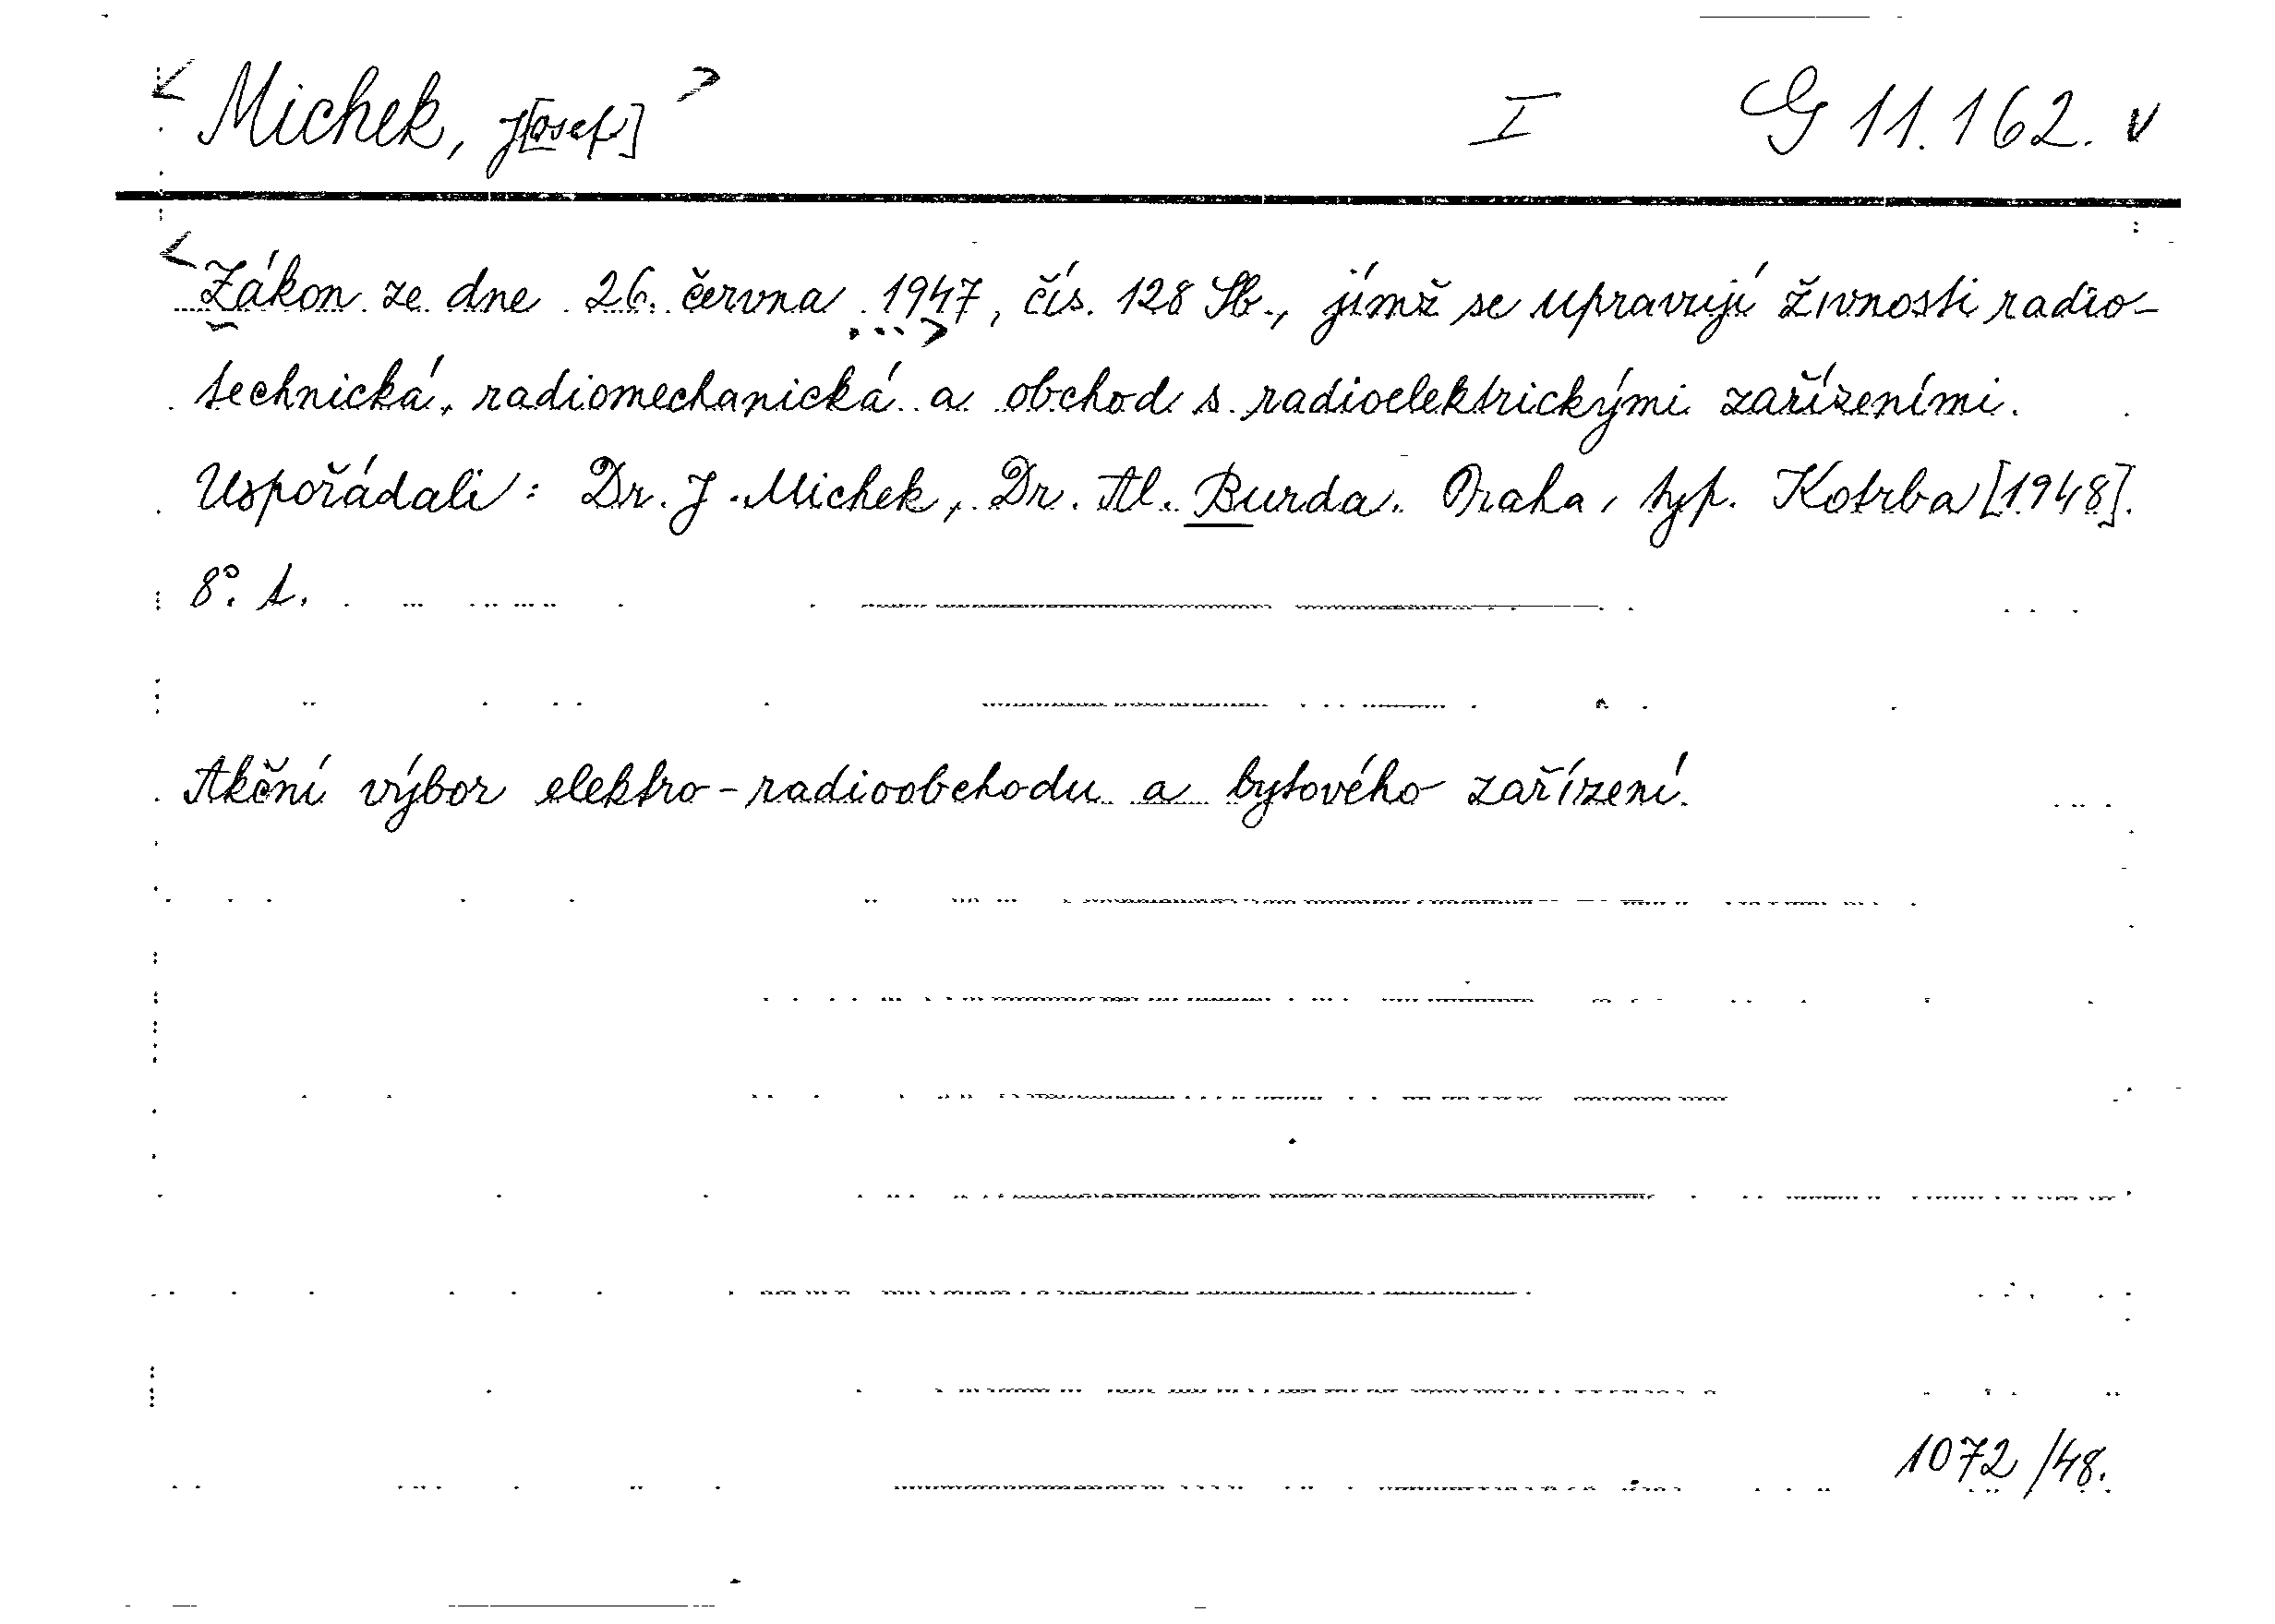 < Michek, J[osef] > I G 11.162. v
< Zákon ze dne 26. června 1947, čís. 128 Sb., jímž se upravují živnosti radio-
technická, radiomechanická a obchod s radioelektrickými zařízeními.
Uspořádali: Dr. J. Michek, Dr. Al. Burda. Praha, typ. Kotrba [1948].
8°. s.
Akční výbor elektro-radioobchodu a bytového zařízení.
1072/48.